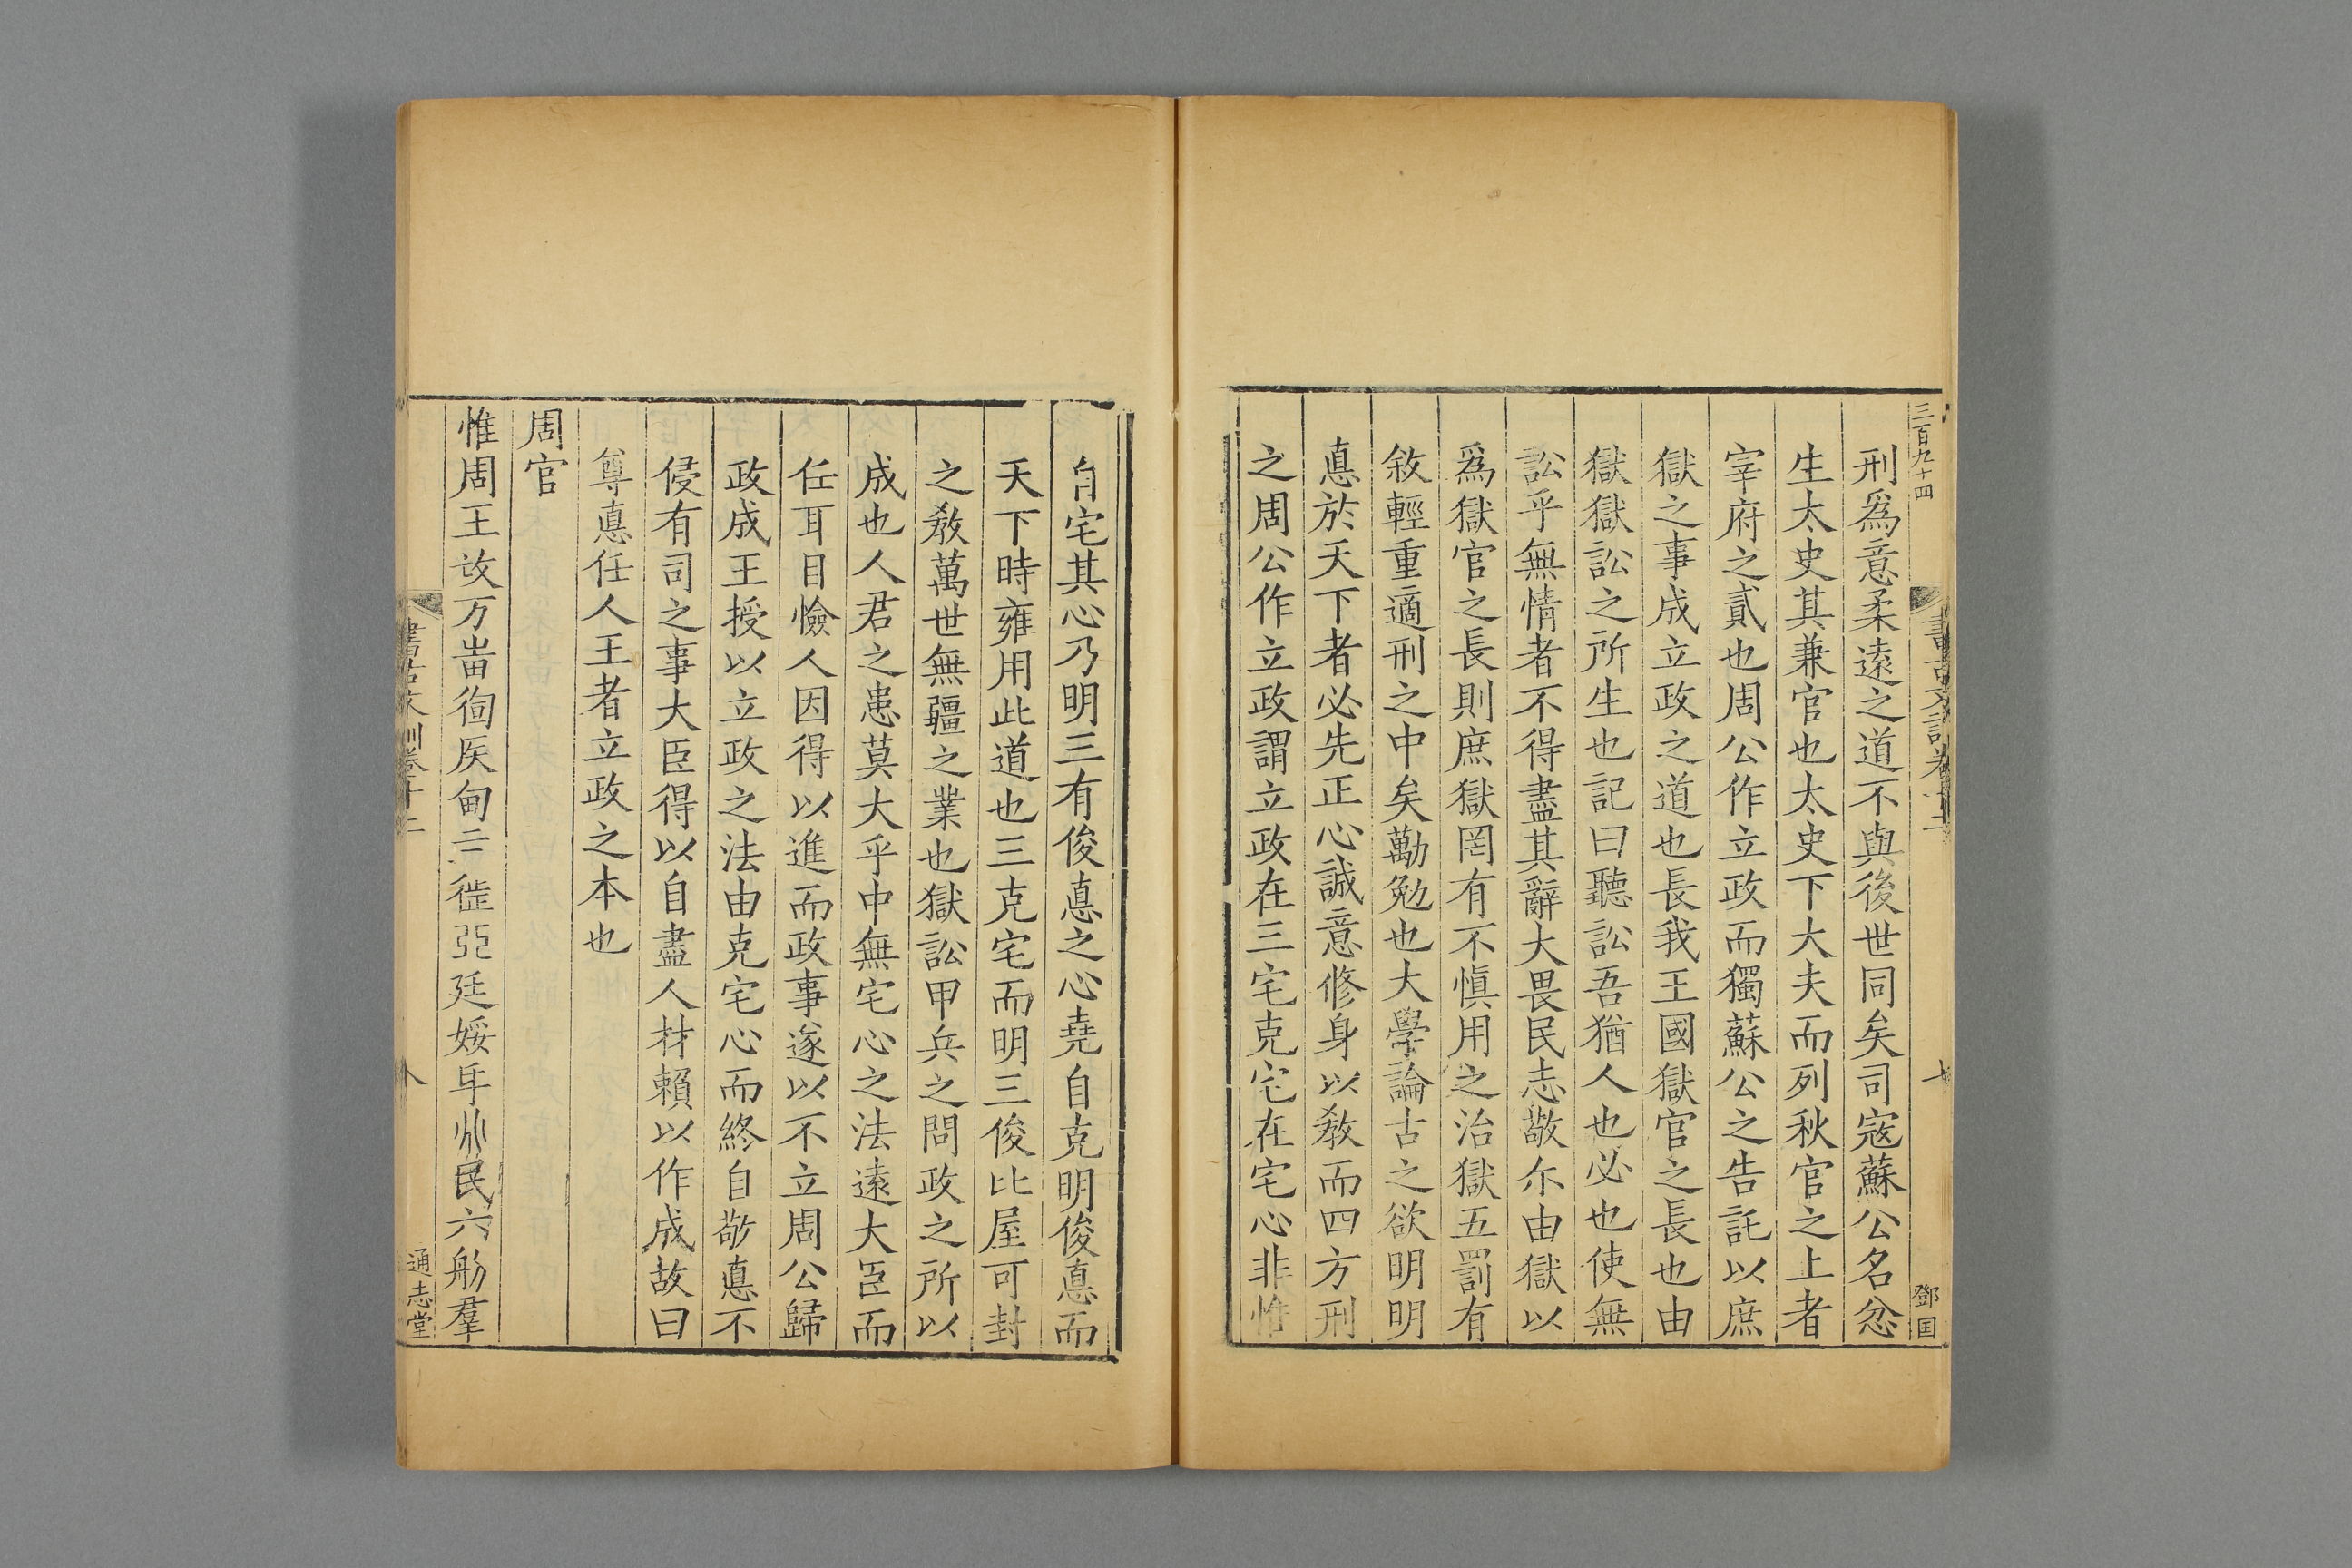 三百九十四
鄧国
刑爲意柔遠之道不與後世同矣司寇蘇公名忿
生太史其兼官也太史下大夫而列秋官之上者
宰府之貳也周公作立政而獨蘇公之告託以庶
獄之事成立政之道也長我王國獄官之長也由
獄獄訟之所生也記曰聽訟吾猶人也必也使無
訟乎無情者不得盡其辭大畏民志敬尒由獄以
爲獄官之長則庶獄罔有不愼用之治獄五罰有
敘輕重適刑之中矣勱勉也大學論古之欲明明
悳於天下者必先正心誠意修身以敎而四方刑
之周公作立政謂立政在三宅克宅在宅心非惟
自宅其心乃明三有俊悳之心堯自克明俊悳而
天下時雍用此道也三克宅而明三俊比屋可封
之敎萬世無疆之業也獄訟甲兵之問政之所以
成也人君之患莫大乎中無宅心之法遠大臣而
任耳目憸人因得以進而政事遂以不立周公歸
政成王授以立政之法由克宅心而終自敬悳不
侵有司之事大臣得以自盡人材賴以作成故曰
尊悳任人王者立政之本也
周官
惟周王攼万𤰫徇𥎦甸三徰弫廷娞𠂹𠈌民六𦨶羣
書古文訓卷十二
八
通志堂